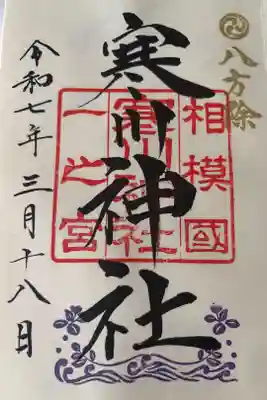 八方除
相模國
寒川神社
一之宮
寒川神社
令和七年三月十八日